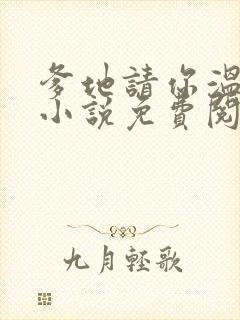 爹地請你溫
小說免費閱
九月輕歌